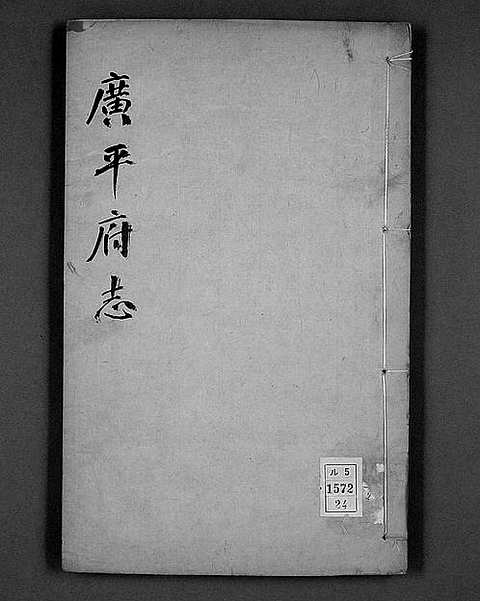 廣平府志
ル 5
1572
24